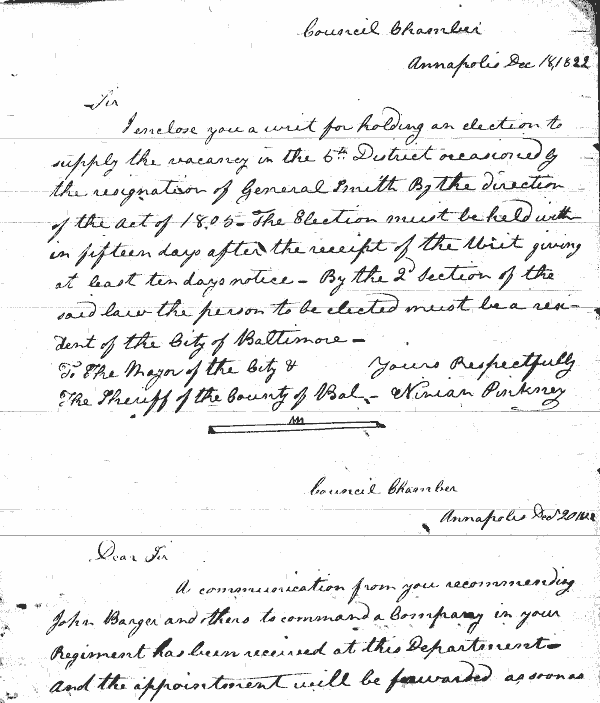 Council Chamber
Annapolis Dec 18, 1822
Sir
I enclose you a writ for holding an election to
supply the vacancy in the 5th District occasioned by
the resignation of General Smith By the direction
of the Act of 1805 - The Election must be held with-
in fifteen days after the receipt of the Writ giving
at least ten days notice - By the 2d Section of the
said law the person to be elected must be a resi-
dent of the City of Baltimore -
To The Mayor of the City & Yours Respectfully
The Sheriff of the County of Bal - Ninian Pinkney
Council Chamber
Annapolis Decr 20 1822
Dear Sir
A communication from you recommending
John Barger and others to command a Company in your
Regiment has been received at this Department -
And the appointment will be forwarded as soon as